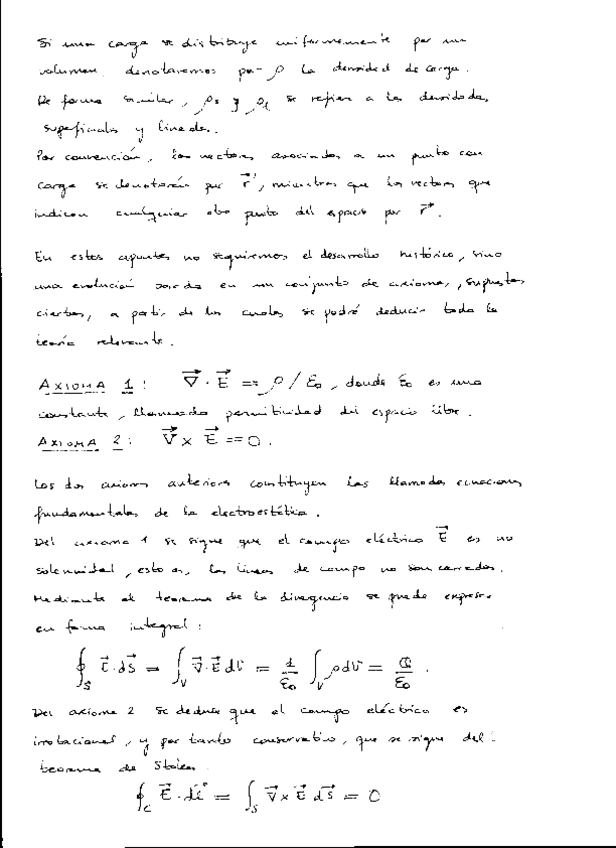 Si una carga se distribuye uniformemente por un
volumen denotaremos por ρ la densidad de carga.
De forma similar, ρs y ρl se refieren a las densidades
superficiales y lineales.
Por convención, los vectores asociados a un punto con
carga se denotarán por r⃗', mientras que los vectores que
indican cualquier otro punto del espacio por r⃗.
En estos apuntes no seguiremos el desarrollo histórico, sino
una evolución basada en un conjunto de axiomas, supuestos
ciertos, a partir de los cuales se podrá deducir toda la
teoría relevante.
AXIOMA 1: ∇⃗ · E⃗ = ρ/ε₀, donde ε₀ es una
constante, llamada permitividad del espacio libre.
AXIOMA 2: ∇⃗ × E⃗ = 0.
Los dos axiomas anteriores constituyen las llamadas ecuaciones
fundamentales de la electroestática.
Del axioma 1 se sigue que el campo eléctrico E⃗ es no
solenoidal, esto es, las líneas de campo no son cerradas.
Mediante el teorema de la divergencia se puede expresar
en forma integral:
∮_S E⃗ · dS⃗ = ∫_V ∇⃗ · E⃗ dV = 1/ε₀ ∫_V ρ dV = Q/ε₀.
Del axioma 2 se deduce que el campo eléctrico es
irrotacional, y por tanto conservativo, que se sigue del
teorema de Stokes.
∮_C E⃗ · dl⃗ = ∫_S ∇⃗ × E⃗ dS⃗ = 0